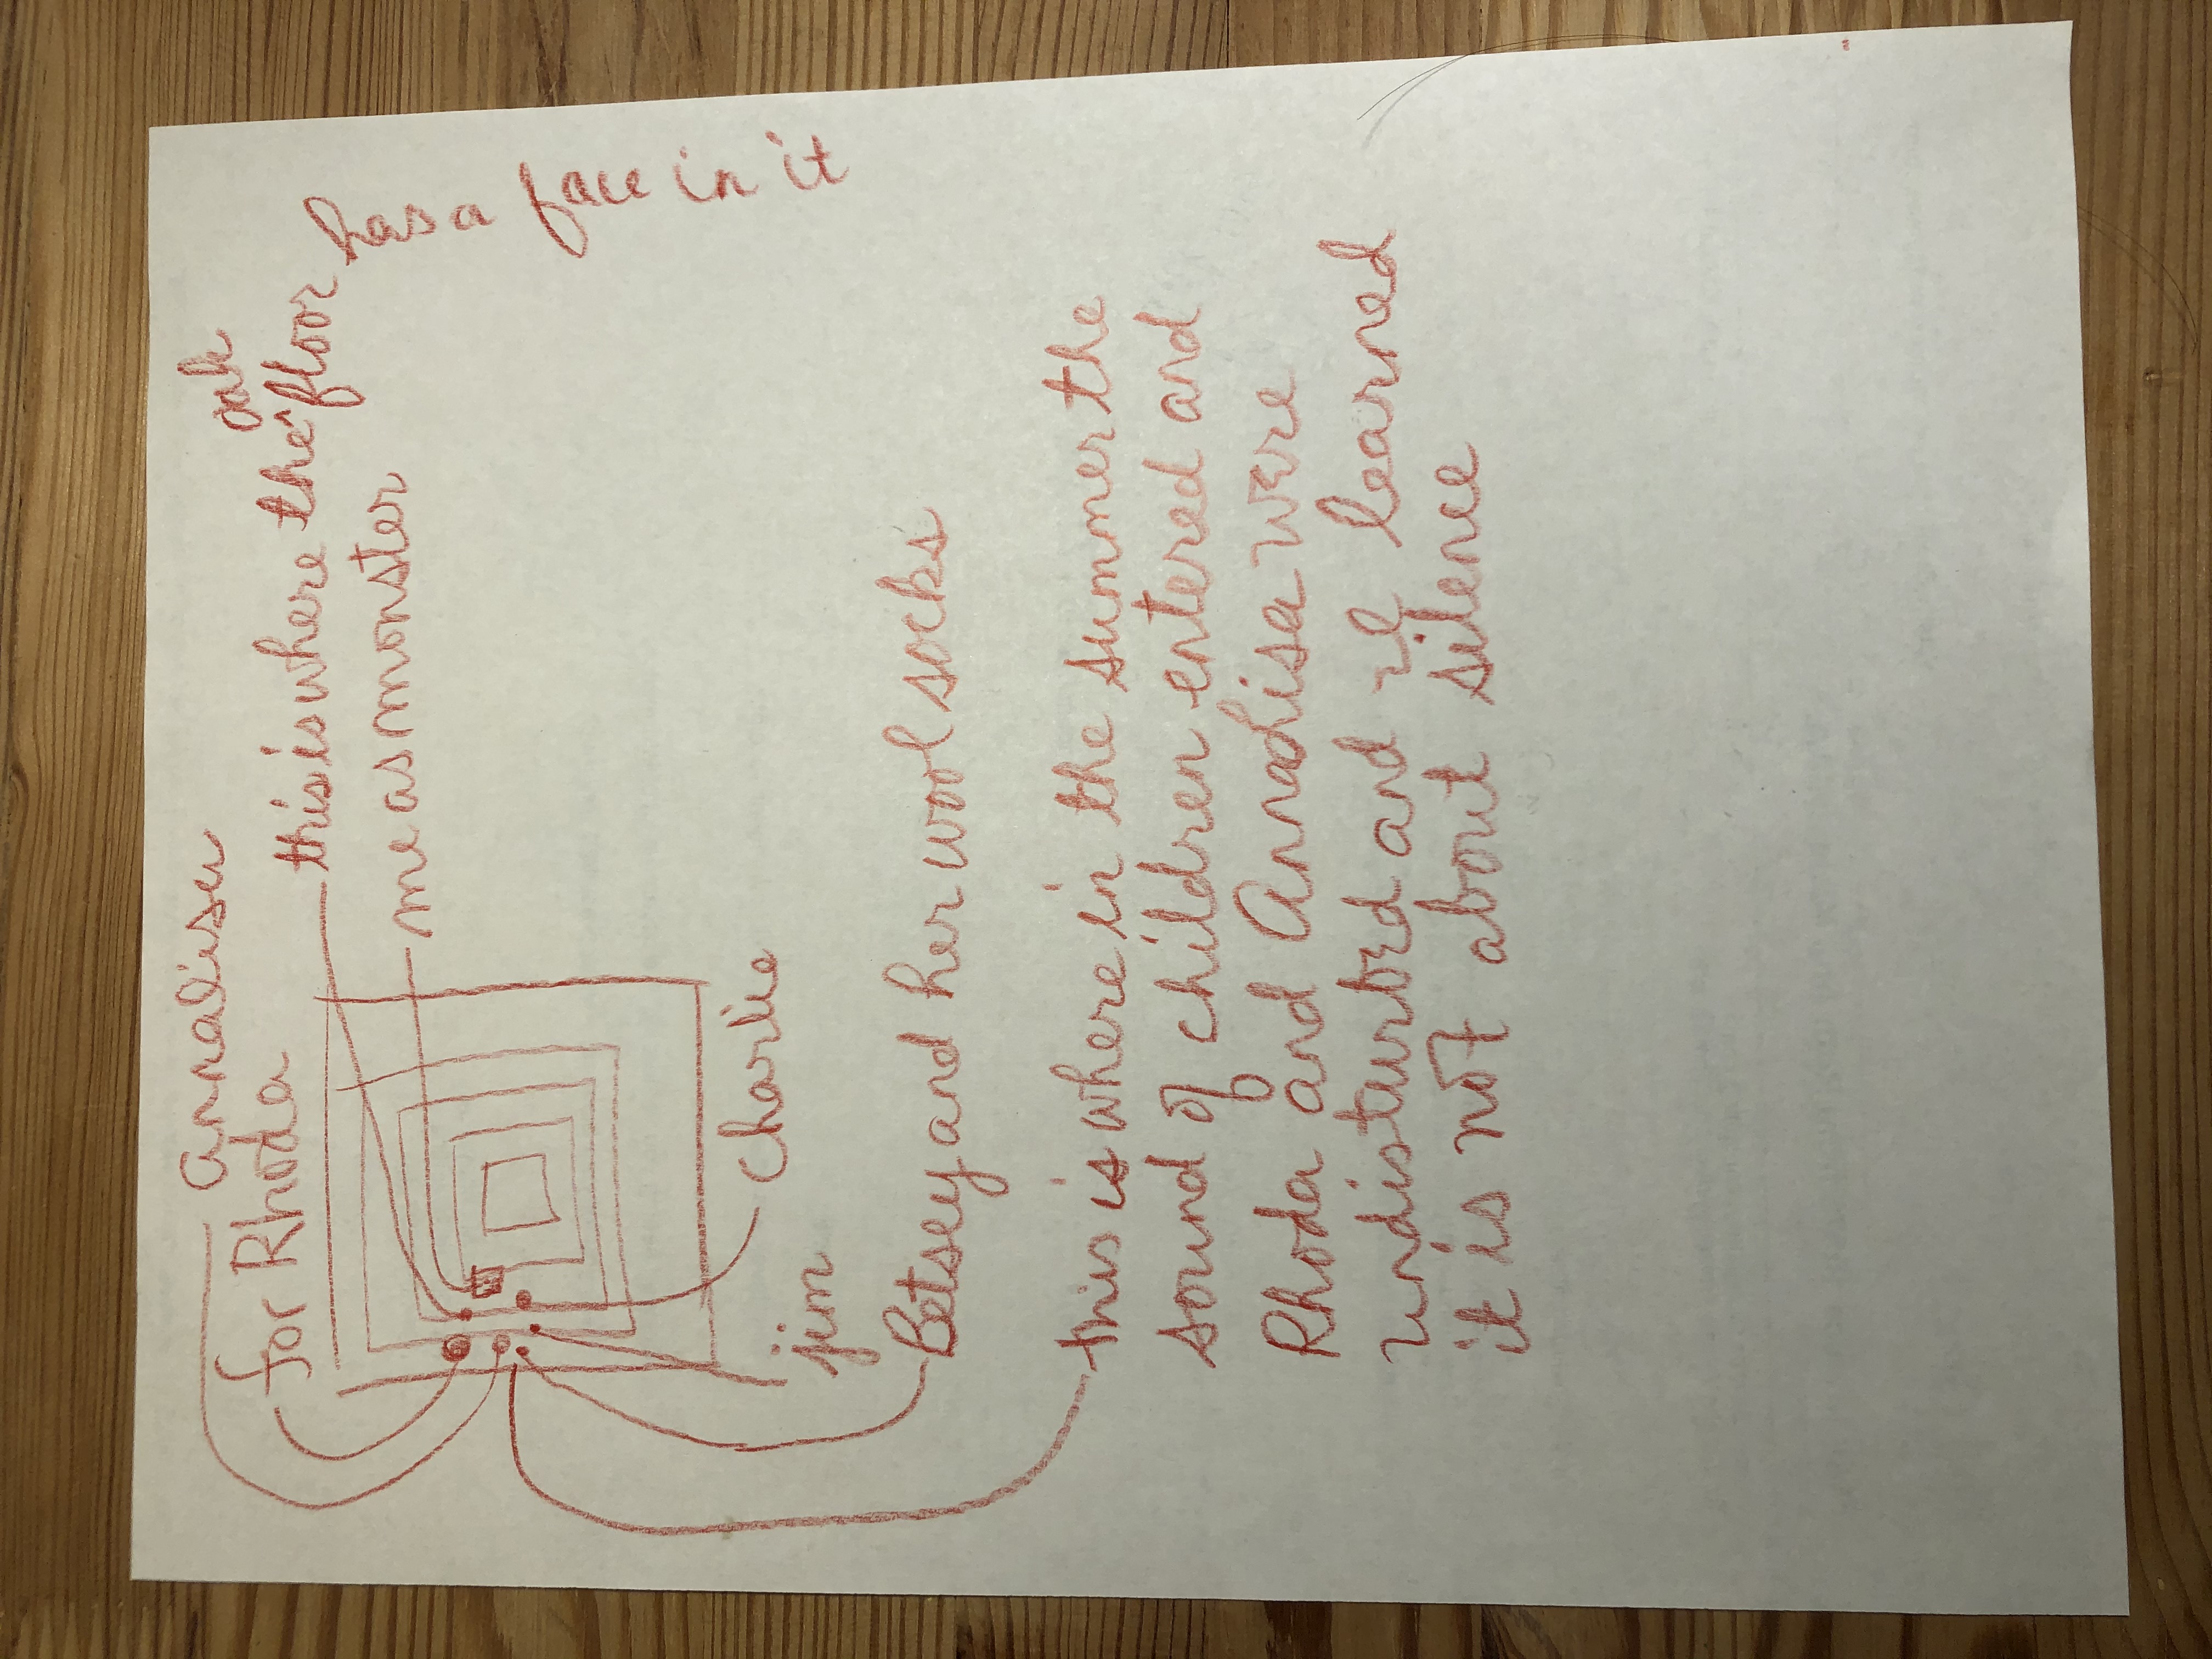 Annalisa
for Rhoda
this is where the ^oak floor has a face in it
me as monster
Charlie
jim
Betsey and her wool socks
this is where in the summer the
sound of children entered and
Rhoda and AnnaLisa were
undisturbed and I learned
it is not about silence